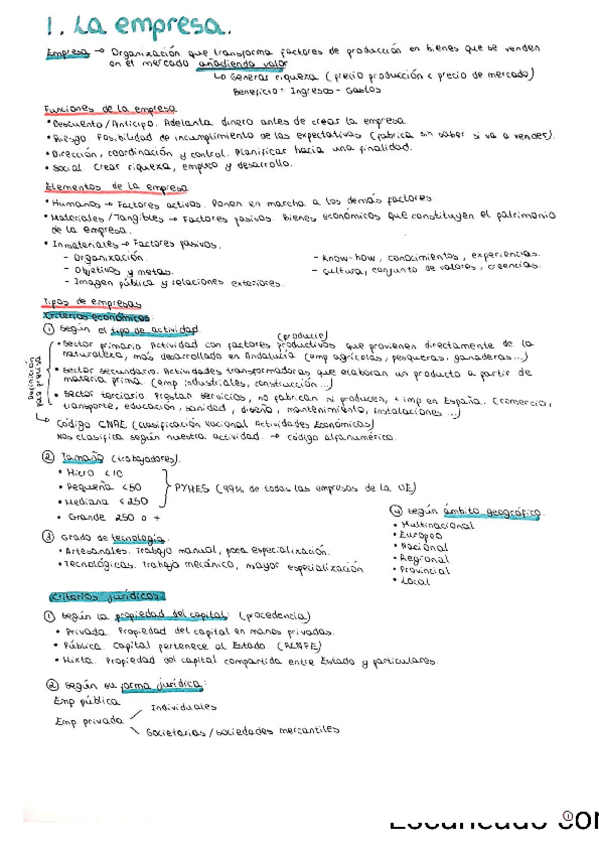 1. La empresa.
Empresa → Organización que transforma factores de producción en bienes que se venden
en el mercado añadiendo valor
↳ Generar riqueza (precio producción < precio de mercado)
Beneficio = Ingresos - Gastos
Funciones de la empresa
• Descuento/Anticipo. Adelanta dinero antes de crear la empresa.
• Riesgo. Posibilidad de incumplimiento de las expectativas (fabrica sin saber si va a vender).
• Dirección, coordinación y control. Planificar hacia una finalidad.
• Social. Crear riqueza, empleo y desarrollo.
Elementos de la empresa
• Humanos → Factores activos. Ponen en marcha a los demás factores.
• Materiales / Tangibles → Factores pasivos. Bienes económicos que constituyen el patrimonio
de la empresa.
• Inmateriales → Factores pasivos.
- Organización. - Know-how, conocimientos, experiencias.
- Objetivos y metas. - Cultura, conjunto de valores, creencias.
- Imagen pública y relaciones exteriores.
Tipos de empresas
Criterios económicos:
① Según el tipo de actividad
(producir)
• Sector primario. Actividad con factores productivos que provienen directamente de la
naturaleza, más desarrollado en Andalucía (emp agrícolas, pesqueras, ganaderas...)
• Sector secundario. Actividades transformadoras que elaboran un producto a partir de
materia prima (emp industriales, construcción ...)
• Sector terciario. Prestan servicios, no fabrican ni producen, + imp en España. (comercio,
transporte, educación, sanidad, diseño, mantenimiento, instalaciones ...)
↳ Código CNAE (Clasificación Nacional Actividades Económicas)
Nos clasifica según nuestra actividad. → código alfanumérico.
② Tamaño (trabajadores).
• Micro < 10
• Pequeña < 50
PYMES (99% de todas las empresas de la UE)
• Mediana < 250
• Grande 250 o +
③ Grado de tecnología.
• Artesanales. Trabajo manual, poca especialización.
• Tecnológicas. Trabajo mecánico, mayor especialización
④ Según ámbito geográfico.
• Multinacional
• Europeo
• Nacional
• Regional
• Provincial
• Local
Criterios jurídicos:
① Según la propiedad del capital: (procedencia)
• Privada. Propiedad del capital en manos privadas.
• Pública. Capital pertenece al Estado. (RENFE)
• Mixta. Propiedad del capital compartida entre Estado y particulares.
② Según su forma jurídica:
Emp pública
Emp privada
Individuales
Societarias / sociedades mercantiles
①